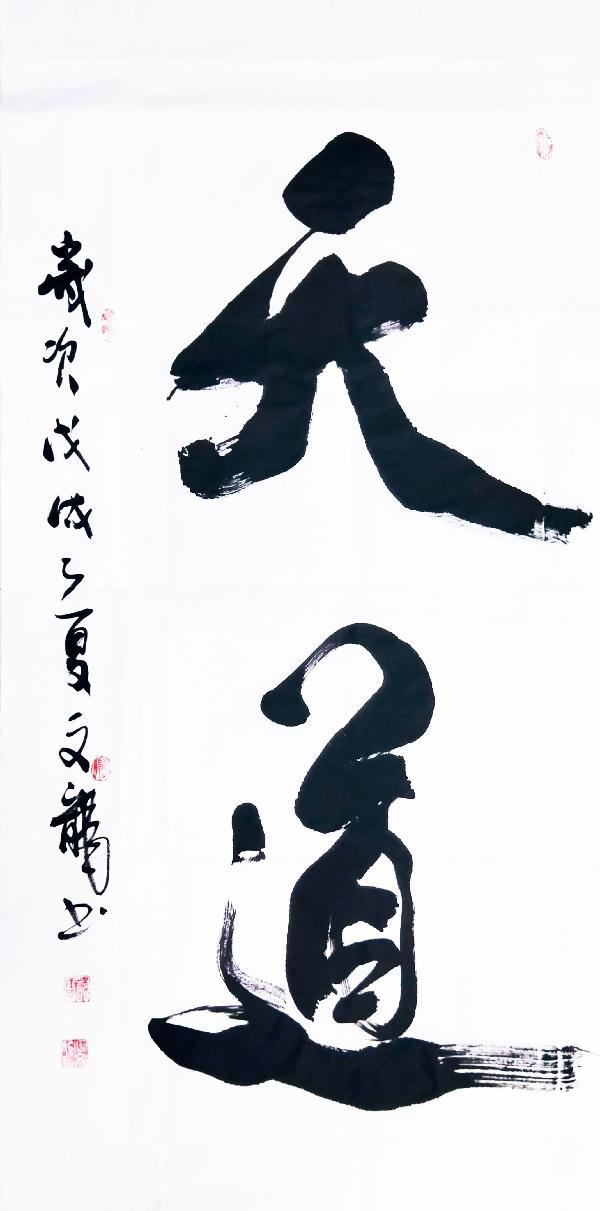 天道
歲次戊戌之夏文龍书